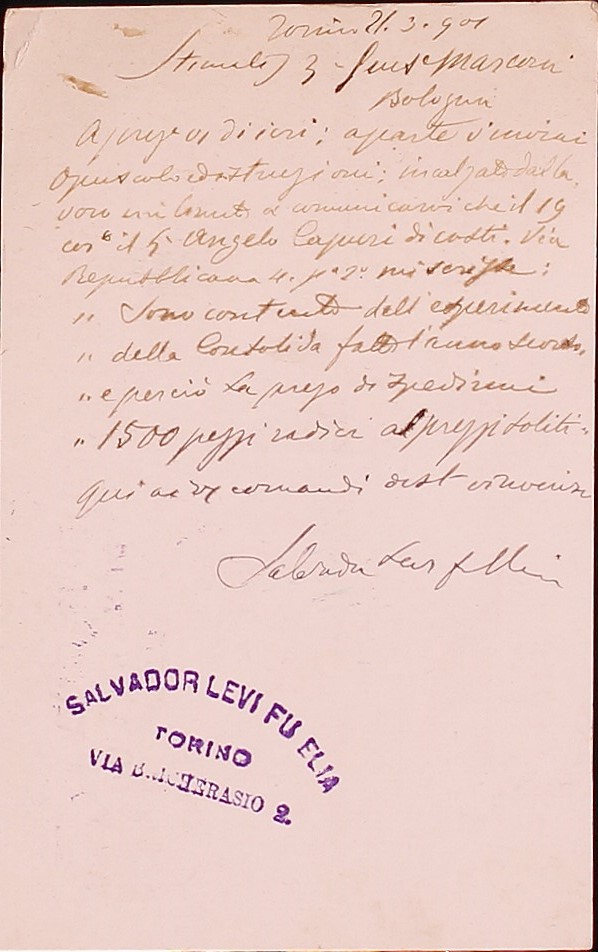 Torino 21.3.901
Giuse Marconi
Bologna
A preg. vs di ieri; a parte v'inviai
opuscolo ed istruzioni; incalzato dal la-
voro a comunicarvi che il 19
corr il Sr Angelo Capuri di costì. Via
Repubblicana 4. pº 2º mi scrisse:
" Sono contento dell'esperimento
" della Consolida fatto l'anno scorso,
" e perciò La prego di spedirmi
" 1500 pezzi radici ai prezzi soliti "
Qui ai vs comandi dist
Salvador Levi fu Elia
SALVADOR LEVI FU ELIA
TORINO
VIA BRICHERASIO 2.